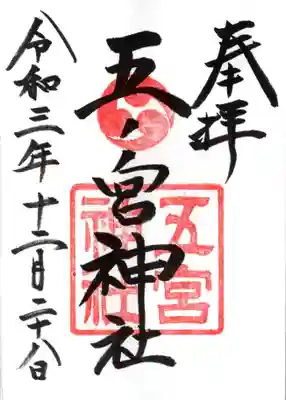 奉拝
五ノ宮神社
五宮神社
令和三年十二月二十八日